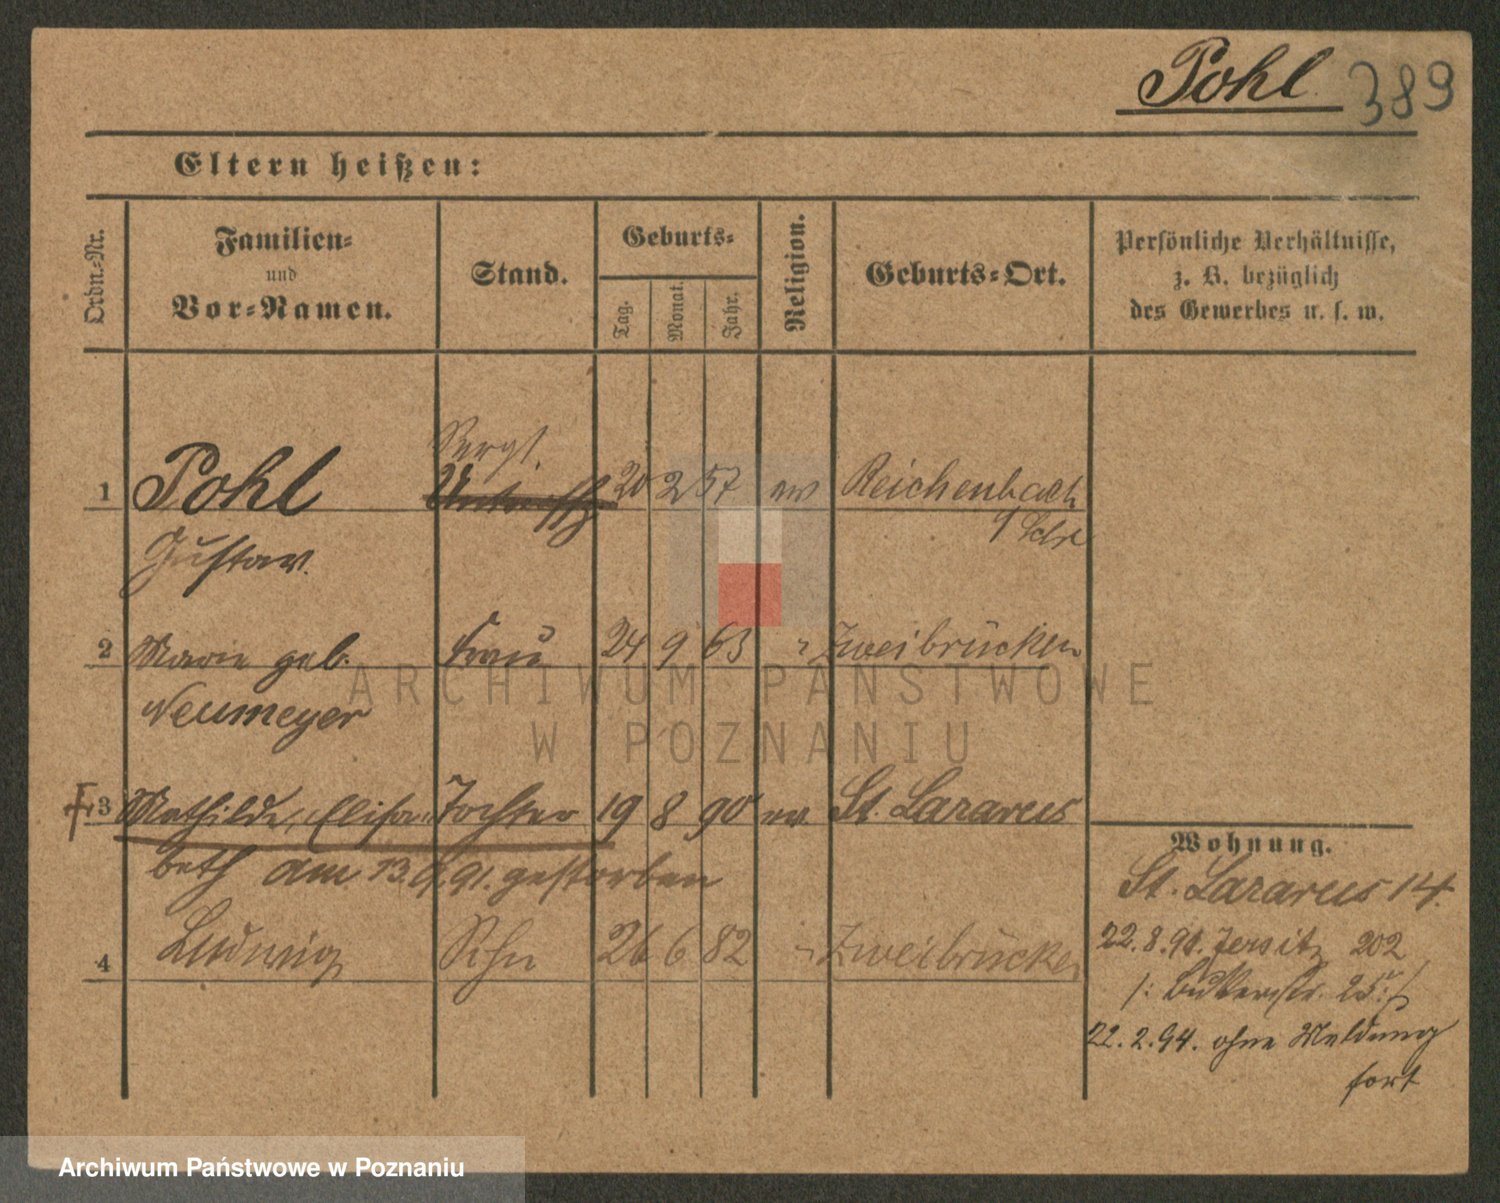 Pohl 389
Eltern heißen:
Ordn.-Nr.
Familien-
und
Vor-Namen.
Stand.
Geburts-
Tag.
Monat.
Jahr.
Religion.
Geburts-Ort.
Persönliche Verhältnisse,
z. B. bezüglich
des Gewerbes u. s. w.
Sergt.
1 Pohl Unteroffz 20 2 57 ev Reichenbach
Gustav.
2 Marie geb. Frau 24 9 63 " Zweibrücken
Neumeyer
3 Mathilde, Elisa- Tochter 19 8 90 ev. St. Lazarus
beth am 13. 9. 91. gestorben
4 Ludwig Sohn 26 6 82 " Zweibrücken
Wohnung.
St. Lazarus 14.
22. 8. 91. Jersitz 202
25
22. 2. 94. ohne Meldung
fort
ARCHIWUM PAŃSTWOWE
W POZNANIU
Archiwum Państwowe w Poznaniu